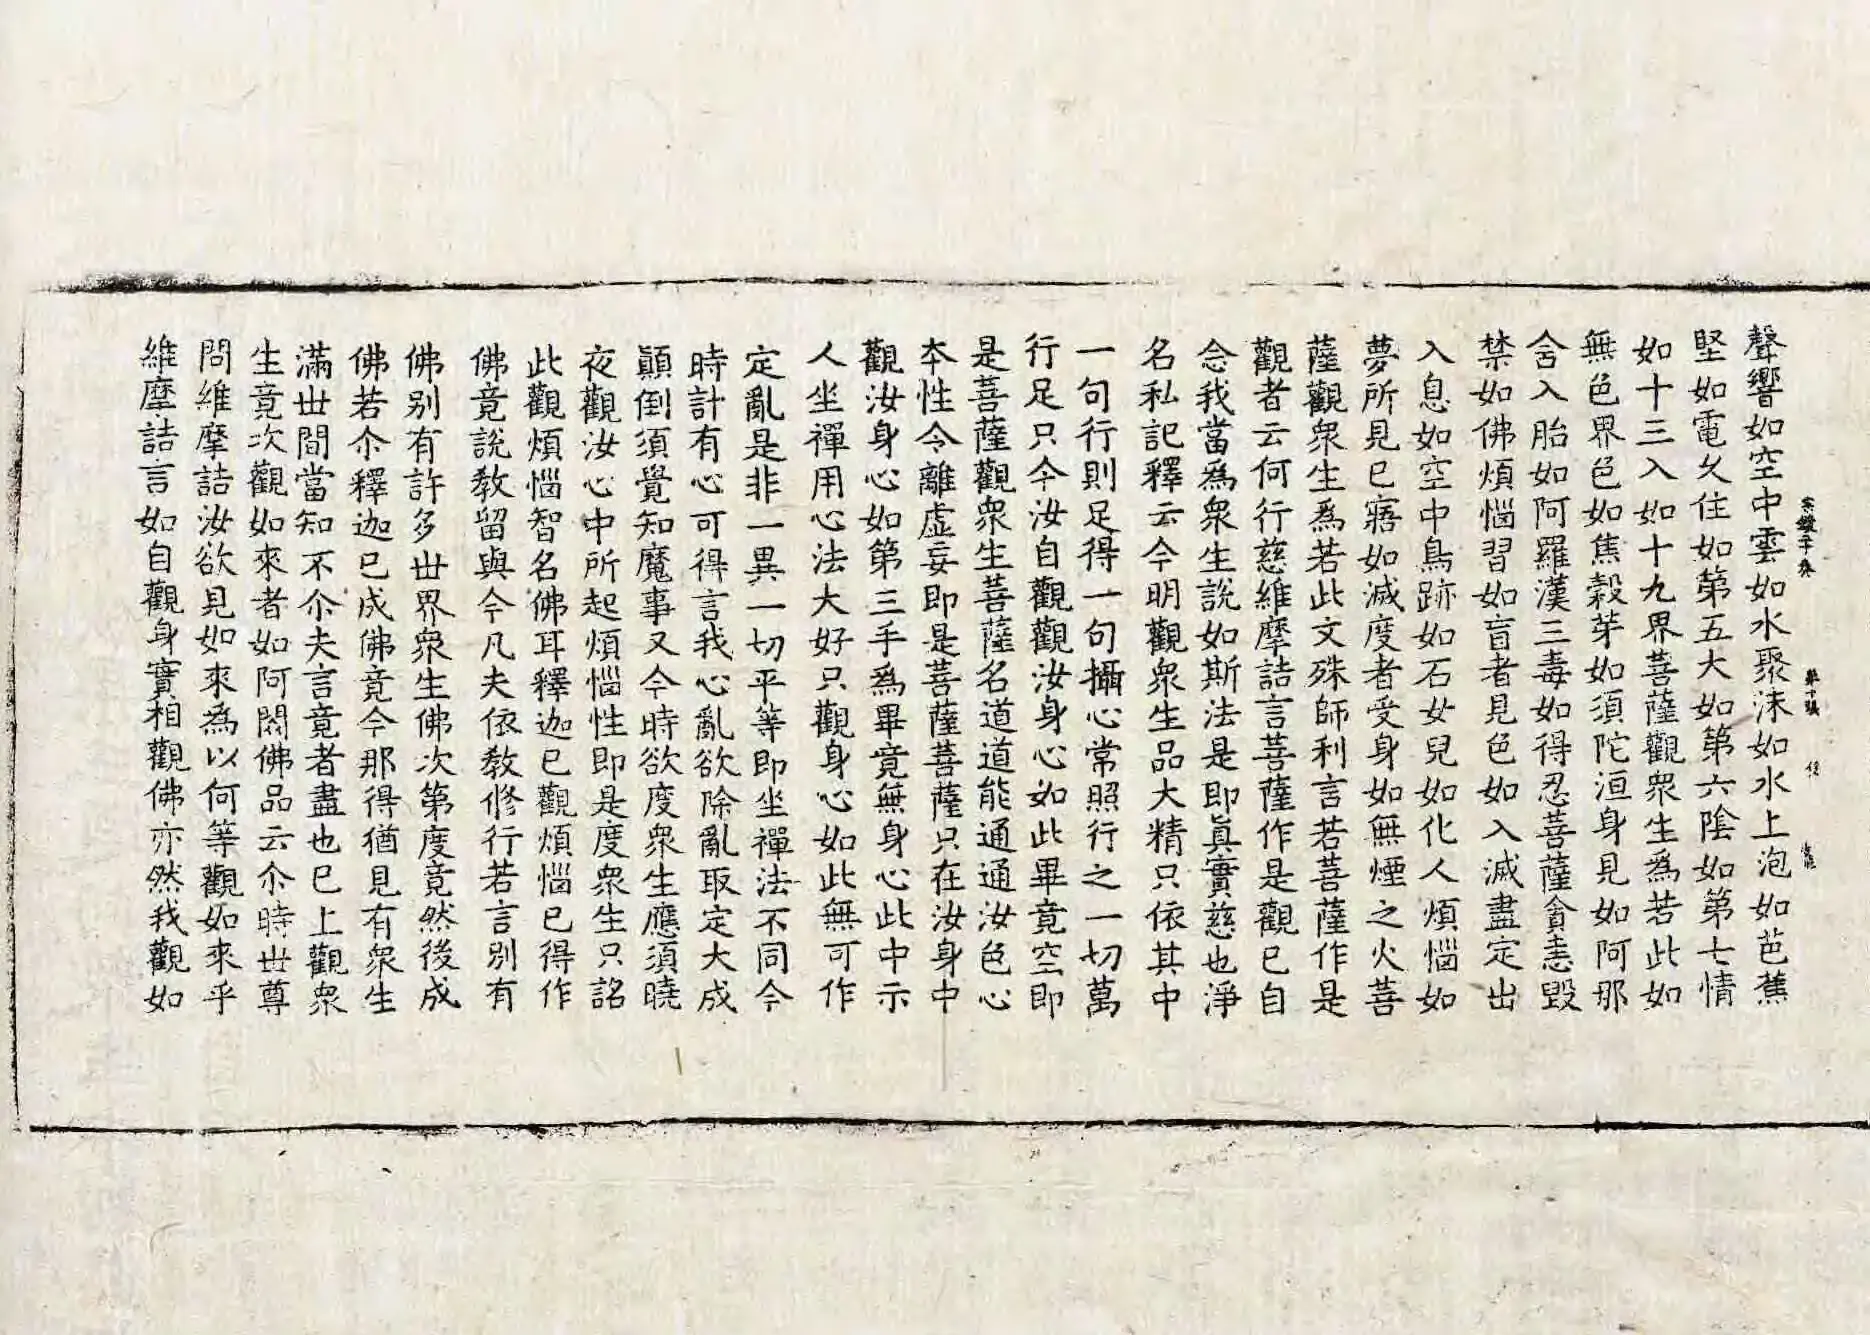 聲響如空中雲如水聚沫如水上泡如芭蕉
堅如電久住如第五大如第六陰如第七情
如十三入如十九界菩薩觀衆生為若此如
無色界色如焦穀芽如須陀洹身見如阿那
含入胎如阿羅漢三毒如得忍菩薩貪恚毀
禁如佛煩惱習如盲者見色如入滅盡定出
入息如空中鳥跡如石女兒如化人煩惱如
夢所見已寤如滅度者受身如無煙之火菩
薩觀衆生為若此文殊師利言若菩薩作是
觀者云何行慈維摩詰言菩薩作是觀已自
念我當為衆生說如斯法是即眞實慈也淨
名私記釋云今明觀衆生品大精只依其中
一句行則足得一句攝心常照行之一切萬
行足只今汝自觀觀汝身心如此畢竟空即
是菩薩觀衆生菩薩名道道能通通汝色心
本性令離虛妄即是菩薩菩薩只在汝身中
觀汝身心如第三手為畢竟無身心此中示
人坐禪用心法大好只觀身心如此無可作
定亂是非一異一切平等即坐禪法不同今
時計有心可得言我心亂欲除亂取定大成
顚倒須覺知魔事又今時欲度衆生應須曉
夜觀汝心中所起煩惱性即是度衆生只詺
此觀煩惱智名佛耳釋迦已觀煩惱已得作
佛竟說教留與今凡夫依教修行若言別有
佛別有許多世界衆生佛次第度竟然後成
佛若尒釋迦已成佛竟今那得猶見有衆生
滿世間當知不尒夫言竟者盡也已上觀衆
生竟次觀如來者如阿閦佛品云尒時世尊
問維摩詰汝欲見如來為以何等觀如來乎
維摩詰言如自觀身實相觀佛亦然我觀如